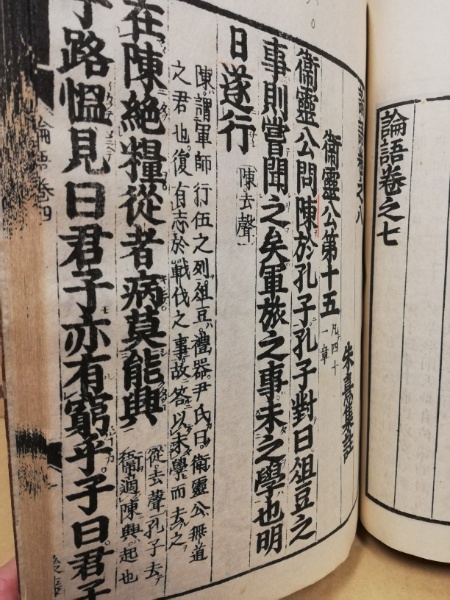 論語卷之七
論語卷之八
朱熹集註
衛靈公第十五
凡四十
一章
衛靈公問陳於孔子孔子對曰俎豆之
事則嘗聞之矣軍旅之事未之學也明
日遂行
陳去聲
陳謂軍師行伍之列俎豆禮器尹氏曰衛靈公無道
之君也復有志於戰伐之事故答以未學而去之
在陳絕糧從者病莫能興
從去聲孔子去
衛適陳興起也
子路慍見曰君子亦有窮乎子曰君子
論語卷四